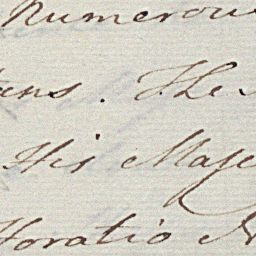 Numerou
ens. The
His Maje
Horatio N